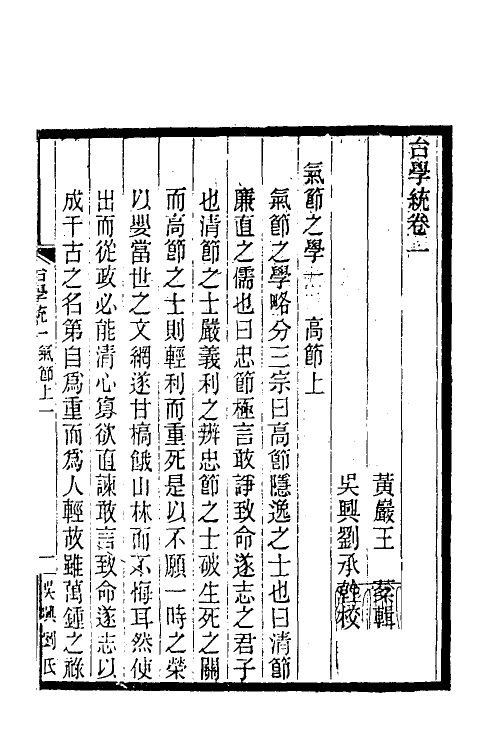 台學統卷一
黃巖王棻輯
吳興劉承幹校
氣節之學一 高節上
氣節之學略分三宗曰高節隱逸之士也曰清節
廉直之儒也曰忠節極言敢諍致命遂志之君子
也清節之士嚴義利之辨忠節之士破生死之關
而高節之士則輕利而重死是以不願一時之榮
以嬰當世之文網遂甘槁餓山林而不悔耳然使
出而從政必能清心寡欲直諫敢言致命遂志以
成千古之名第自為重而為人輕故雖萬鍾之祿
台學統一 氣節上 一 吳興劉氏